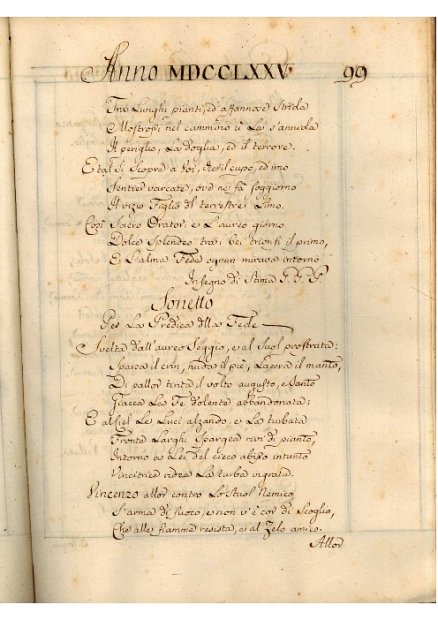 Anno MDCCLXXV. 99
Tra Lunghi pianti, ed affannose Strida
Mostrossi nel cammino ù La s'annida
Il periglio, La doglia, ed il terrore.
E tal si scopre a voi, del cupo, ed imo
Sentier varcate, ove ne fà soggiorno
Il vizio Figlio dl terrestre Limo.
Così Sacro Orator e L'aureo giorno
Dolce Splendeo tra i bei trionfi il primo,
E L'alma Fede ognun mirava intorno
In segno di Stima P. F. P
Sonetto
Per La Predica dlla Fede
Svelta dall'aureo Seggio, e al Suol prostrata:
Sparsa il crin, nuda il piè, Lacera il manto,
Di pallor tinta il volto augusto, e Santo
Giacea La Fe dolente abbandonata:
E al Ciel Le Luci alzando, e La turbata
Fronte Larghi spargea rivi di pianto,
Intorno a Lei del cieco abisso intanto
Vincitrice ridea La turba ingrata.
Vincenzo allor contro Lo Stuol Nemico
S'arma di fuoco, e non v'è cor di Scoglio,
Che alle fiamme resista, e al Zelo amico.
Allor